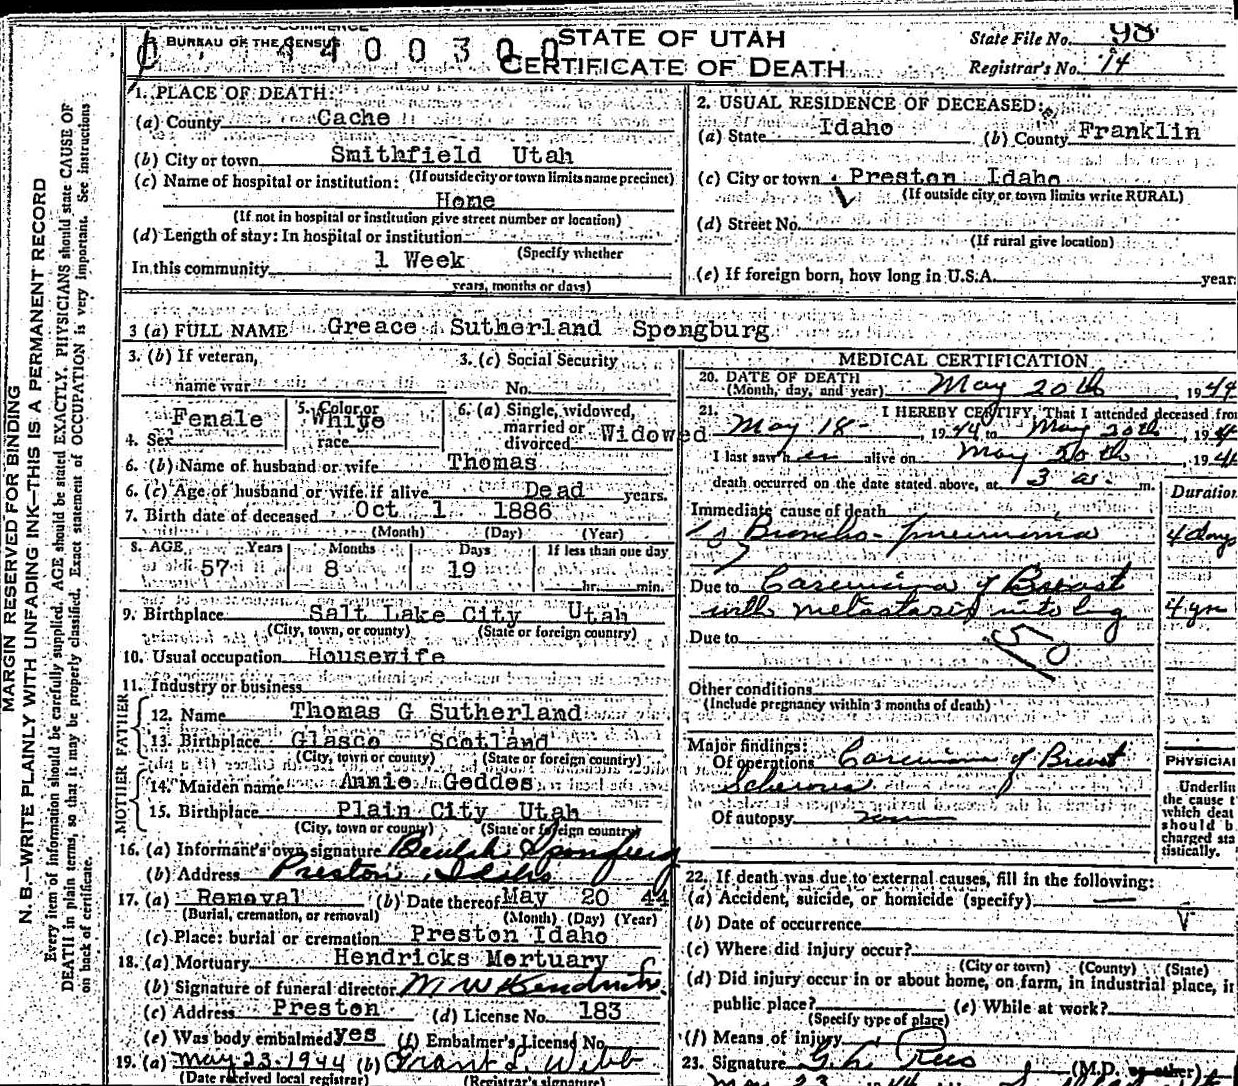 BUREAU OF THE CENSUS
STATE OF UTAH
CERTIFICATE OF DEATH
State File No. 98
Registrar's No. 14
MARGIN RESERVED FOR BINDING
N. B.—WRITE PLAINLY WITH UNFADING INK—THIS IS A PERMANENT RECORD
Every item of information should be carefully supplied. AGE should be stated EXACTLY. PHYSICIANS should state CAUSE OF
DEATH in plain terms, so that it may be properly classified. Exact statement of OCCUPATION is very important. See instructions
on back of certificate.
1. PLACE OF DEATH:
(a) County Cache
(b) City or town Smithfield Utah
(If outside city or town limits name precinct)
(c) Name of hospital or institution:
Home
(If not in hospital or institution give street number or location)
(d) Length of stay: In hospital or institution
(Specify whether
In this community 1 Week
years, months or days)
2. USUAL RESIDENCE OF DECEASED:
(a) State Idaho (b) County Franklin
(c) City or town Preston Idaho
(If outside city or town limits write RURAL)
(d) Street No.
(If rural give location)
(e) If foreign born, how long in U.S.A. year
3 (a) FULL NAME Greace Sutherland Spongburg
3. (b) If veteran, 3. (c) Social Security
name war No.
4. Sex Female 5. Color or race White 6. (a) Single, widowed, married or divorced Widowed
6. (b) Name of husband or wife Thomas
6. (c) Age of husband or wife if alive Dead years.
7. Birth date of deceased Oct 1 1886
(Month) (Day) (Year)
8. AGE Years Months Days If less than one day
57 8 19 hr. min.
9. Birthplace Salt Lake City Utah
(City, town, or county) (State or foreign country)
10. Usual occupation Housewife
11. Industry or business
FATHER
12. Name Thomas G Sutherland
13. Birthplace Glasco Scotland
(City, town or county) (State or foreign country)
MOTHER
14. Maiden name Annie Geddes
15. Birthplace Plain City Utah
(City, town or county) (State or foreign country)
16. (a) Informant's own signature Beulah Spongberg
(b) Address Preston, Idaho
17. (a) Removal (b) Date thereof May 20 44
(Burial, cremation, or removal) (Month) (Day) (Year)
(c) Place: burial or cremation Preston Idaho
18. (a) Mortuary Hendricks Mortuary
(b) Signature of funeral director M W Hendricks.
(c) Address Preston (d) License No. 183
(e) Was body embalmed yes (f) Embalmer's License No.
19. (a) May 23-1944 (b) Grant L. Webb
(Date received local registrar) (Registrar's signature)
MEDICAL CERTIFICATION
20. DATE OF DEATH May 20th, 1944
(Month, day, and year)
21. I HEREBY CERTIFY, That I attended deceased from
May 18-, 1944 to May 20th, 194
I last saw her alive on May 20th, 194
death occurred on the date stated above, at 3 a. m.
Duration
Immediate cause of death
Broncho-pneumonia 4 days
Due to Carcinoma of Breast
with metastasis into lung 4 yrs
Due to
50
Other conditions
(Include pregnancy within 3 months of death)
Major findings:
Of operations Carcinoma of Breast
Of autopsy
PHYSICIAN
Underlin
the cause t
which deat
should b
charged sta
tistically.
22. If death was due to external causes, fill in the following:
(a) Accident, suicide, or homicide (specify) —
(b) Date of occurrence
(c) Where did injury occur?
(City or town) (County) (State)
(d) Did injury occur in or about home, on farm, in industrial place, in
public place? (e) While at work?
(Specify type of place)
(f) Means of injury
23. Signature G. L. Rees (M.D. or other)